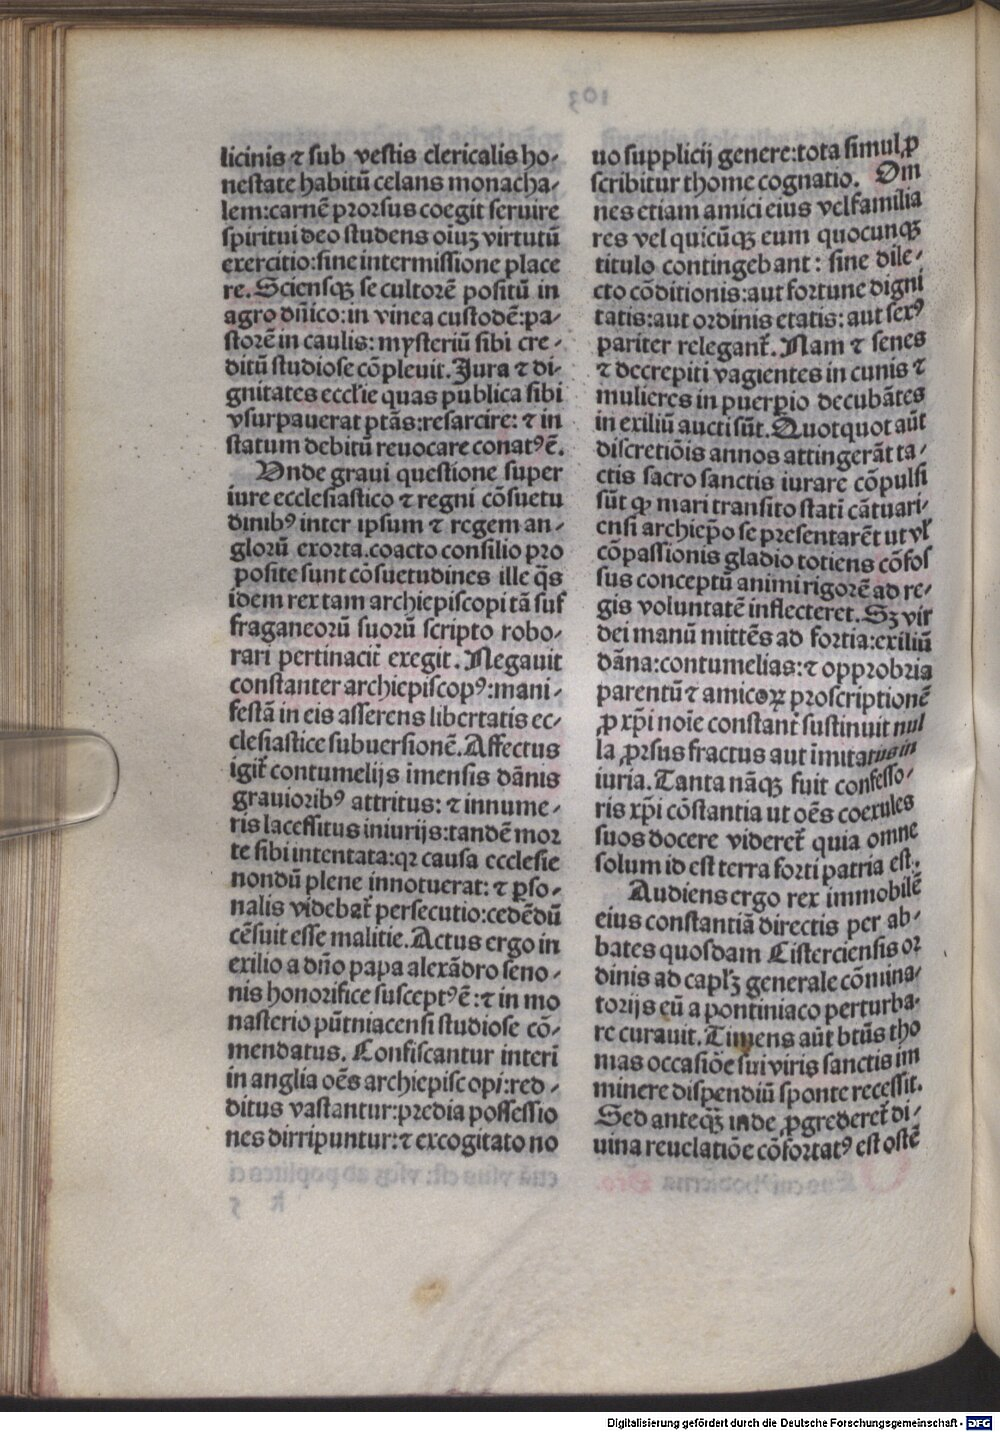 licinis ⁊ sub vestis clericalis ho-
nestate habitū celans monacha-
lem:carnē prorsus coegit seruire
spiritui deo studens oīuꝫ virtutū
exercitio:sine intermissione place
re. Sciensqꝫ se cultorē positū in
agro dn̄ico:in vinea custodē:pa-
storē in caulis: mysteriū sibi cre-
ditū studiose cōpleuit. Jura ⁊ di-
gnitates eccl̄ie quas publica sibi
vsurpauerat ptās:resarcire: ⁊ in
statum debitū reuocare conatꝰ ē.
Vnde graui questione super
iure ecclesiastico ⁊ regni cōsuetu
dinibꝰ inter ipsum ⁊ regem an-
glorū exorta.coacto consilio pro
posite sunt cōsuetudines ille q̄s
idem rex tam archiepiscopi tā suf
fraganeorū suorū scripto robo-
rari pertinacit̄ exegit. Negauit
constanter archiepiscopꝰ:mani-
festā in eis asserens libertatis ec-
clesiastice subuersionē. Affectus
igit̄ contumelijs īmensis dānis
grauioribꝰ attritus: ⁊ innume-
ris lacessitus iniurijs:tandē mor
te sibi intentata:qꝛ causa ecclesie
nondū plene innotuerat: ⁊ ꝑso-
nalis videbat̄ persecutio:cedēdū
cēsuit esse malitie. Actus ergo in
exilio a dn̄o papa alexādro seno-
nis honorifice susceptꝰ ē:⁊ in mo
nasterio pūtniacensi studiose cō-
mendatus. Confiscantur interī
in anglia oēs archiepiscopi:red-
ditus vastantur:predia possessio
nes dirripuntur:⁊ excogitato no
uo supplicij genere:tota simul ꝓ
scribitur thome cognatio. Om
nes etiam amici eius vel familia
res vel quicūqꝫ eum quocunqꝫ
titulo contingebant: sine dile-
cto cōditionis:aut fortune digni
tatis:aut ordinis etatis: aut sexꝰ
pariter relegant̄. Nam ⁊ senes
⁊ decrepiti vagientes in cunis ⁊
mulieres in puerꝑio decubātes
in exiliū aucti sūt. Quotquot aūt
discretiōis annos attingerāt ta-
ctis sacro sanctis iurare cōpulsi
sūt ꝙ mari transito statī cātuari-
ensi archiep̄o se presentarēt ut vl̄
cōpassionis gladio totiens cōfos
sus conceptū animi rigorē ad re-
gis voluntatē inflecteret. Sꝫ vir
dei manū mittēs ad fortia:exiliū
dāna:contumelias:⁊ opprobria
parentū ⁊ amicoꝝ proscriptionē
ꝓ xp̄i noīe constant̄ sustinuit nul
la ꝓrsus fractus aut īmitatus in
iuria. Tanta nāqꝫ fuit confesso-
ris xp̄i cōstantia ut oēs coexules
suos docere videret̄ quia omne
solum id est terra forti patria est.
Audiens ergo rex immobilē
eius constantiā directis per ab-
bates quosdam Cisterciensis or
dinis ad capl̄ꝫ generale cōmina-
torijs eū a pontiniaco perturba-
re curauit. Timens aūt btūs tho
mas occasiōe sui viris sanctis im
minere dispendiū sponte recessit.
Sed anteqꝫ̄ inde ꝓgrederet̄ di-
uina reuelatiōe cōfortatꝰ est ostē
Digitalisierung gefördert durch die Deutsche Forschungsgemeinschaft - DFG